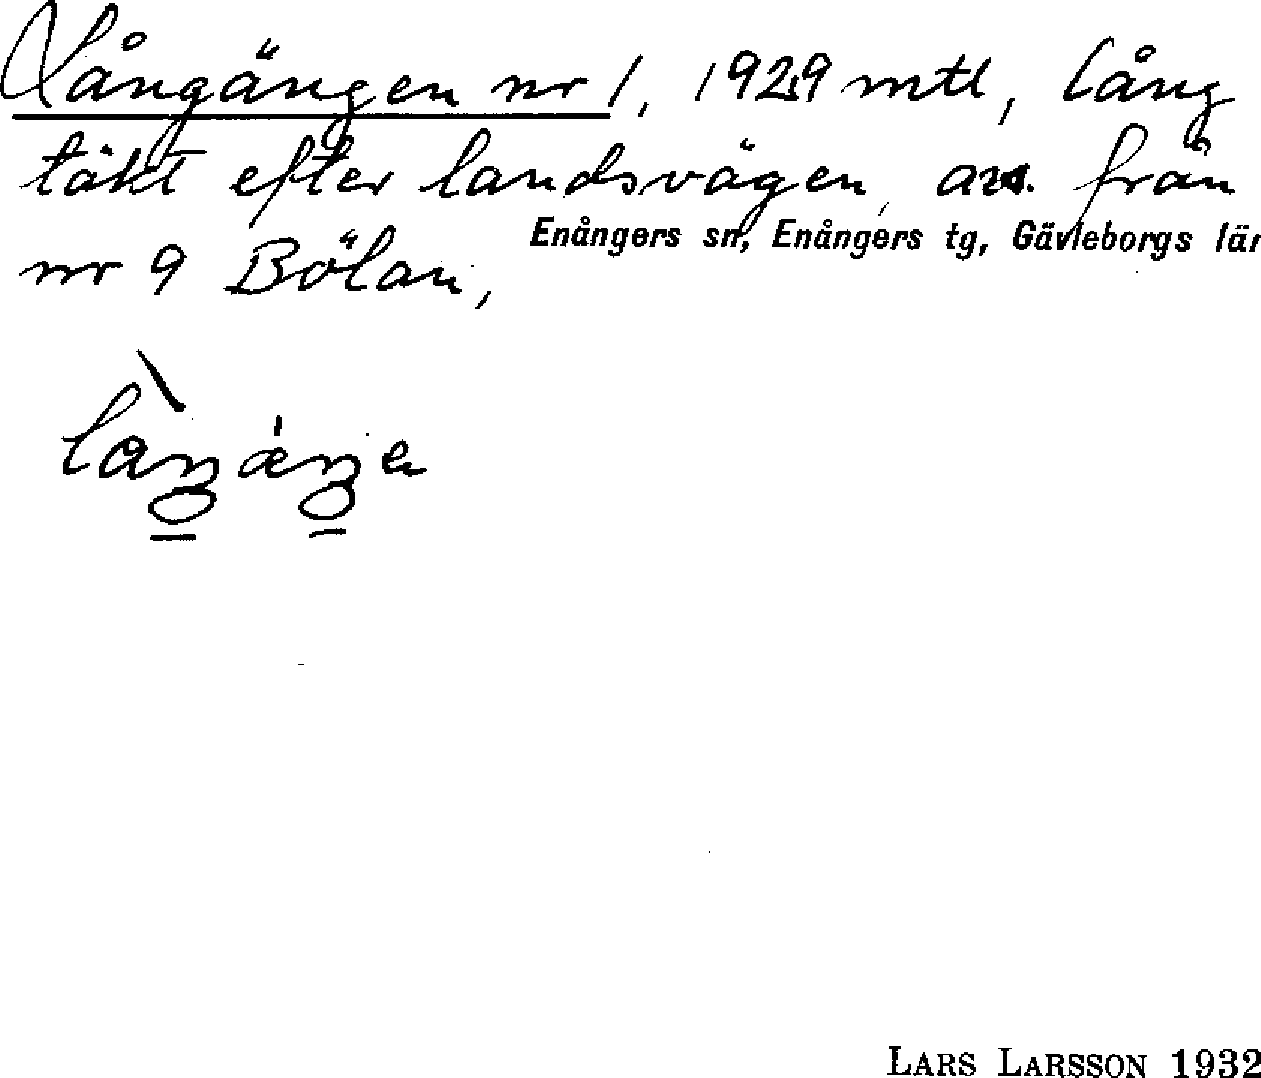 Långängen nr 1, 1929 mtl, lång
täkt efter landsvägen, avs. från
Enångers sn, Enångers tg, Gävleborgs lär
nr 9 Bölan,
LARS LARSSON 1932